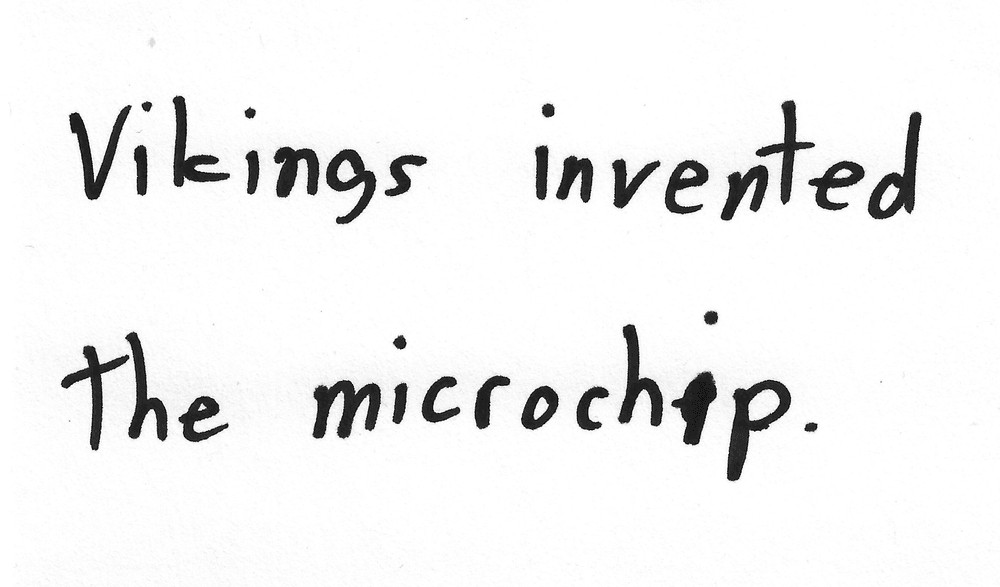 Vikings invented
the microchip.